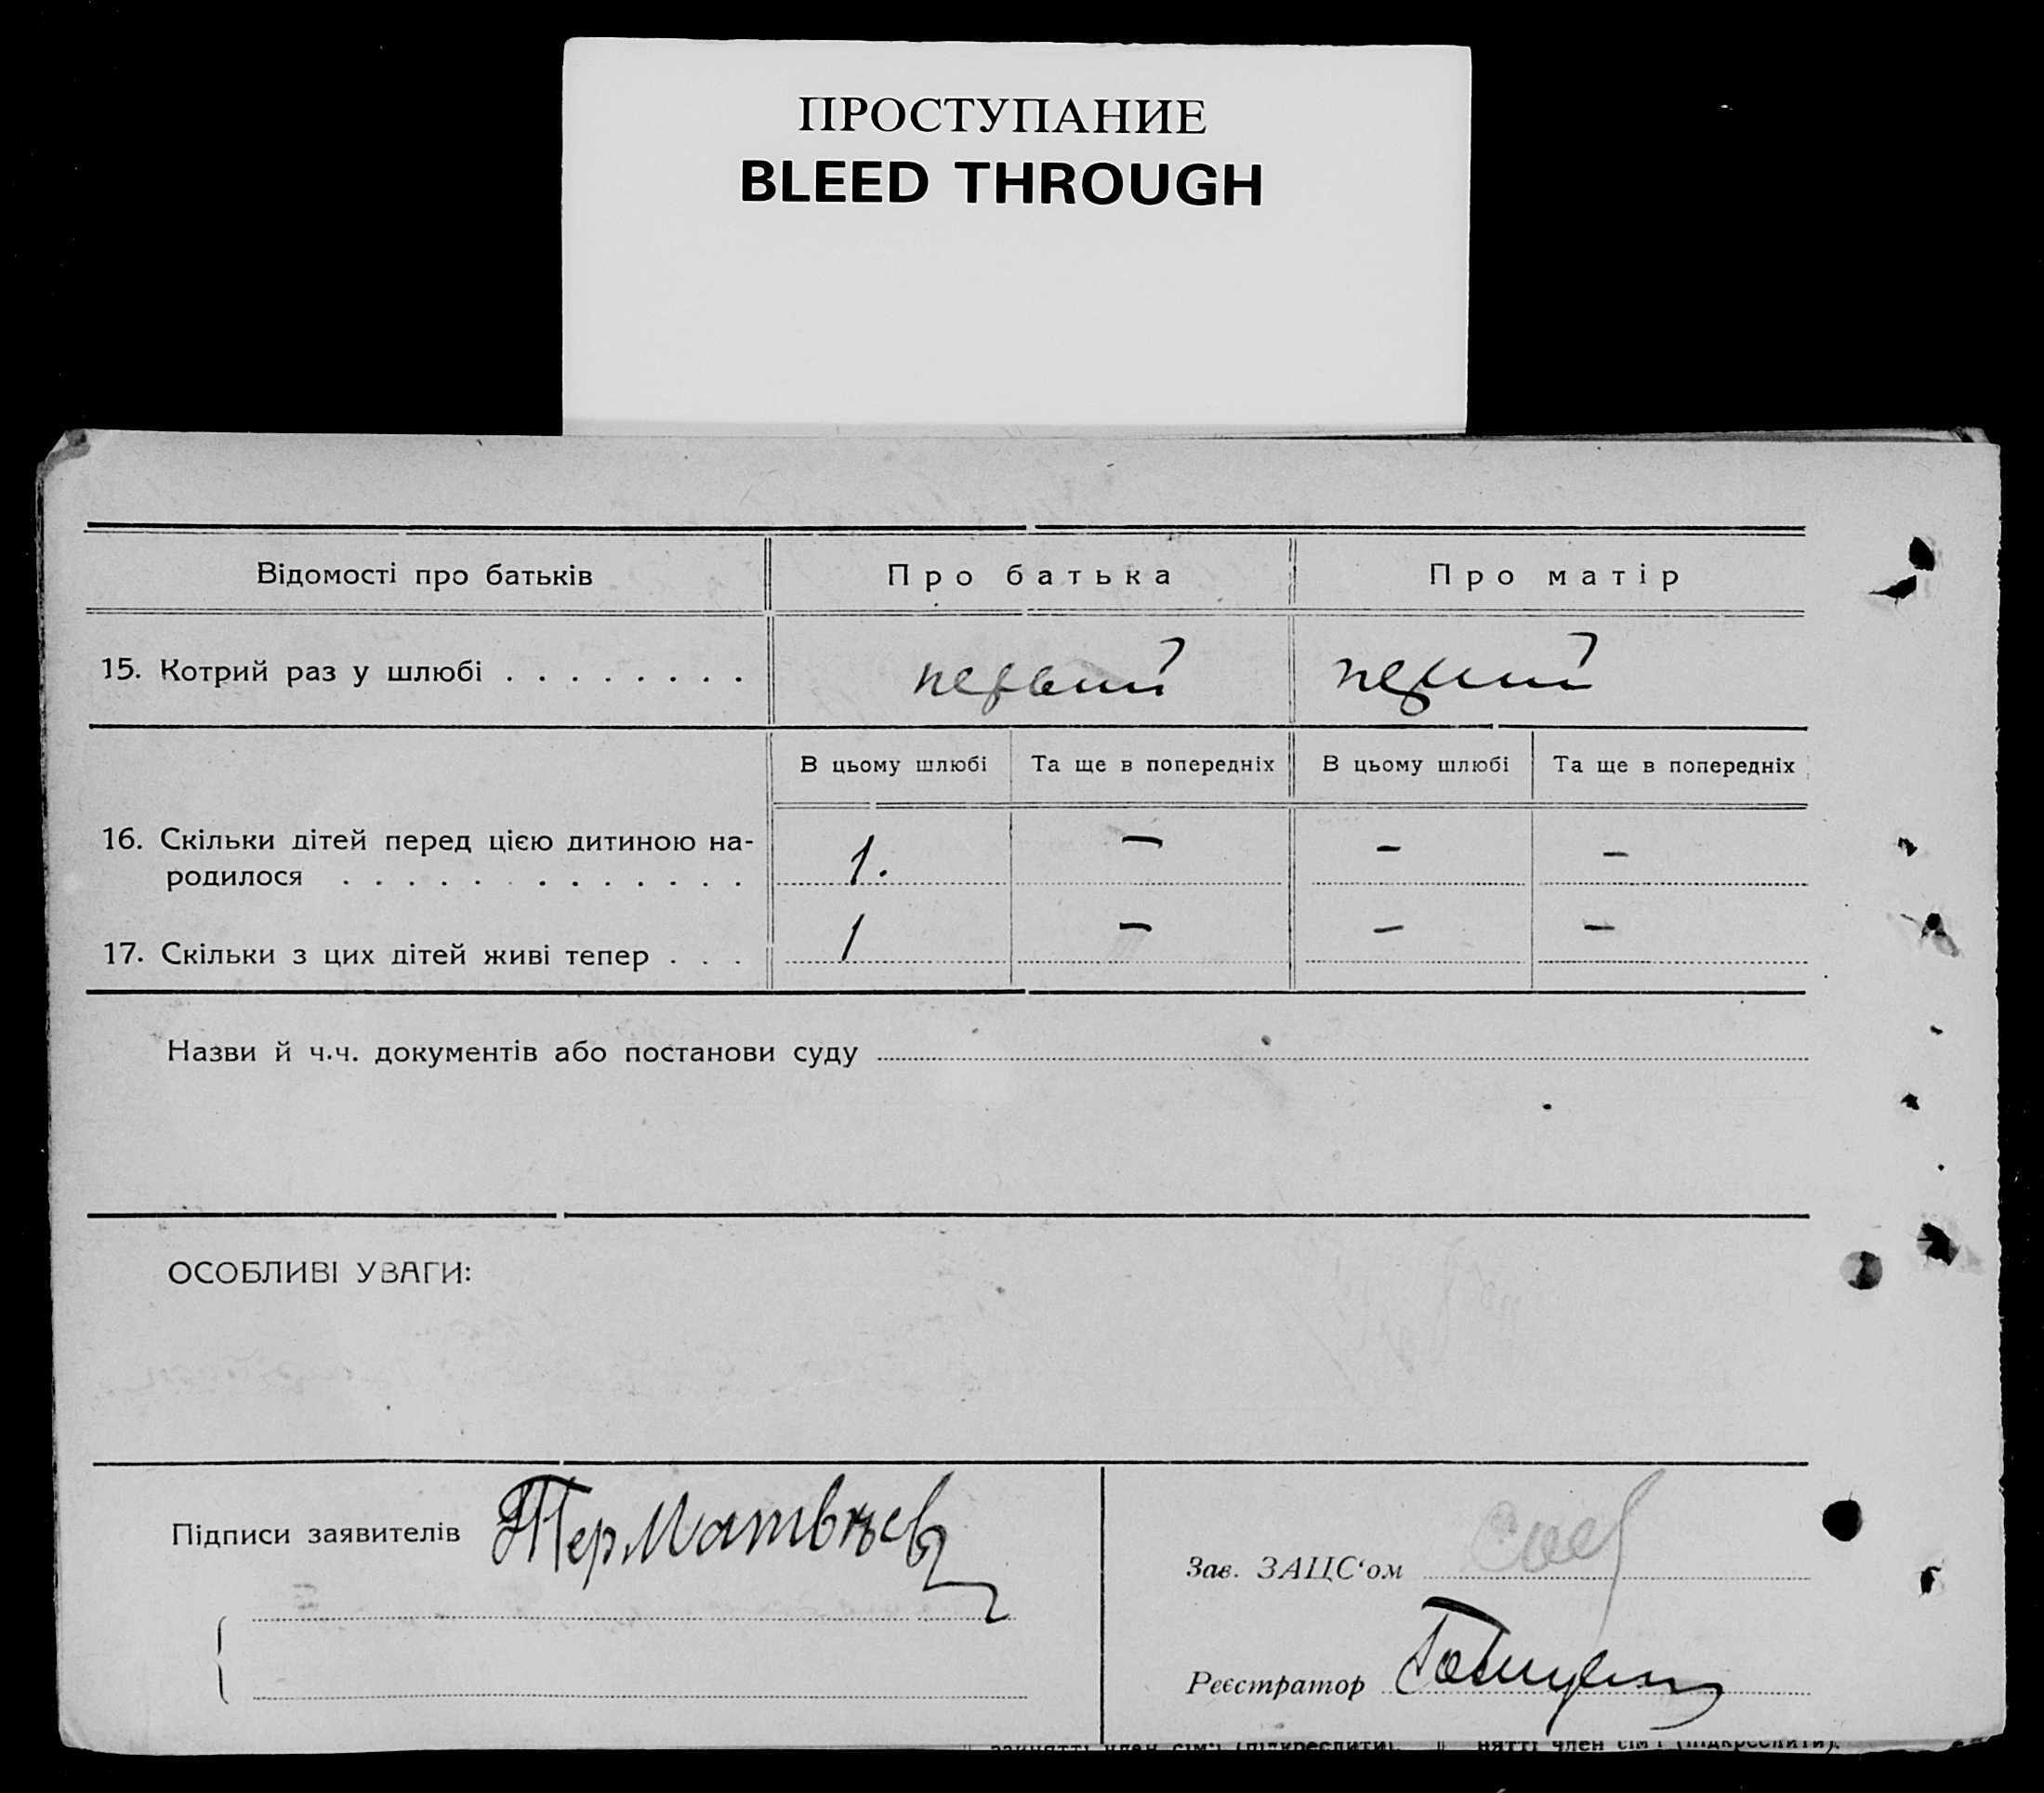 ПРОСТУПАНИЕ
BLEED THROUGH
Відомості про батьків Про батька Про матір
15. Котрий раз у шлюбі . . . . . . . . первий первий
В цьому шлюбі Та ще в попередніх В цьому шлюбі Та ще в попередніх
16. Скільки дітей перед цією дитиною на-
родилося . . . . . . . . . . . . . 1. — — —
17. Скільки з цих дітей живі тепер . . . 1 — — —
Назви й ч.ч. документів або постанови суду
ОСОБЛИВІ УВАГИ:
Підписи заявителів ТерМатвѣев
Зав. ЗАЦС‘ом
Реєстратор
занятті член сім'ї (підкреслити). нятті член сім'ї (підкреслити).